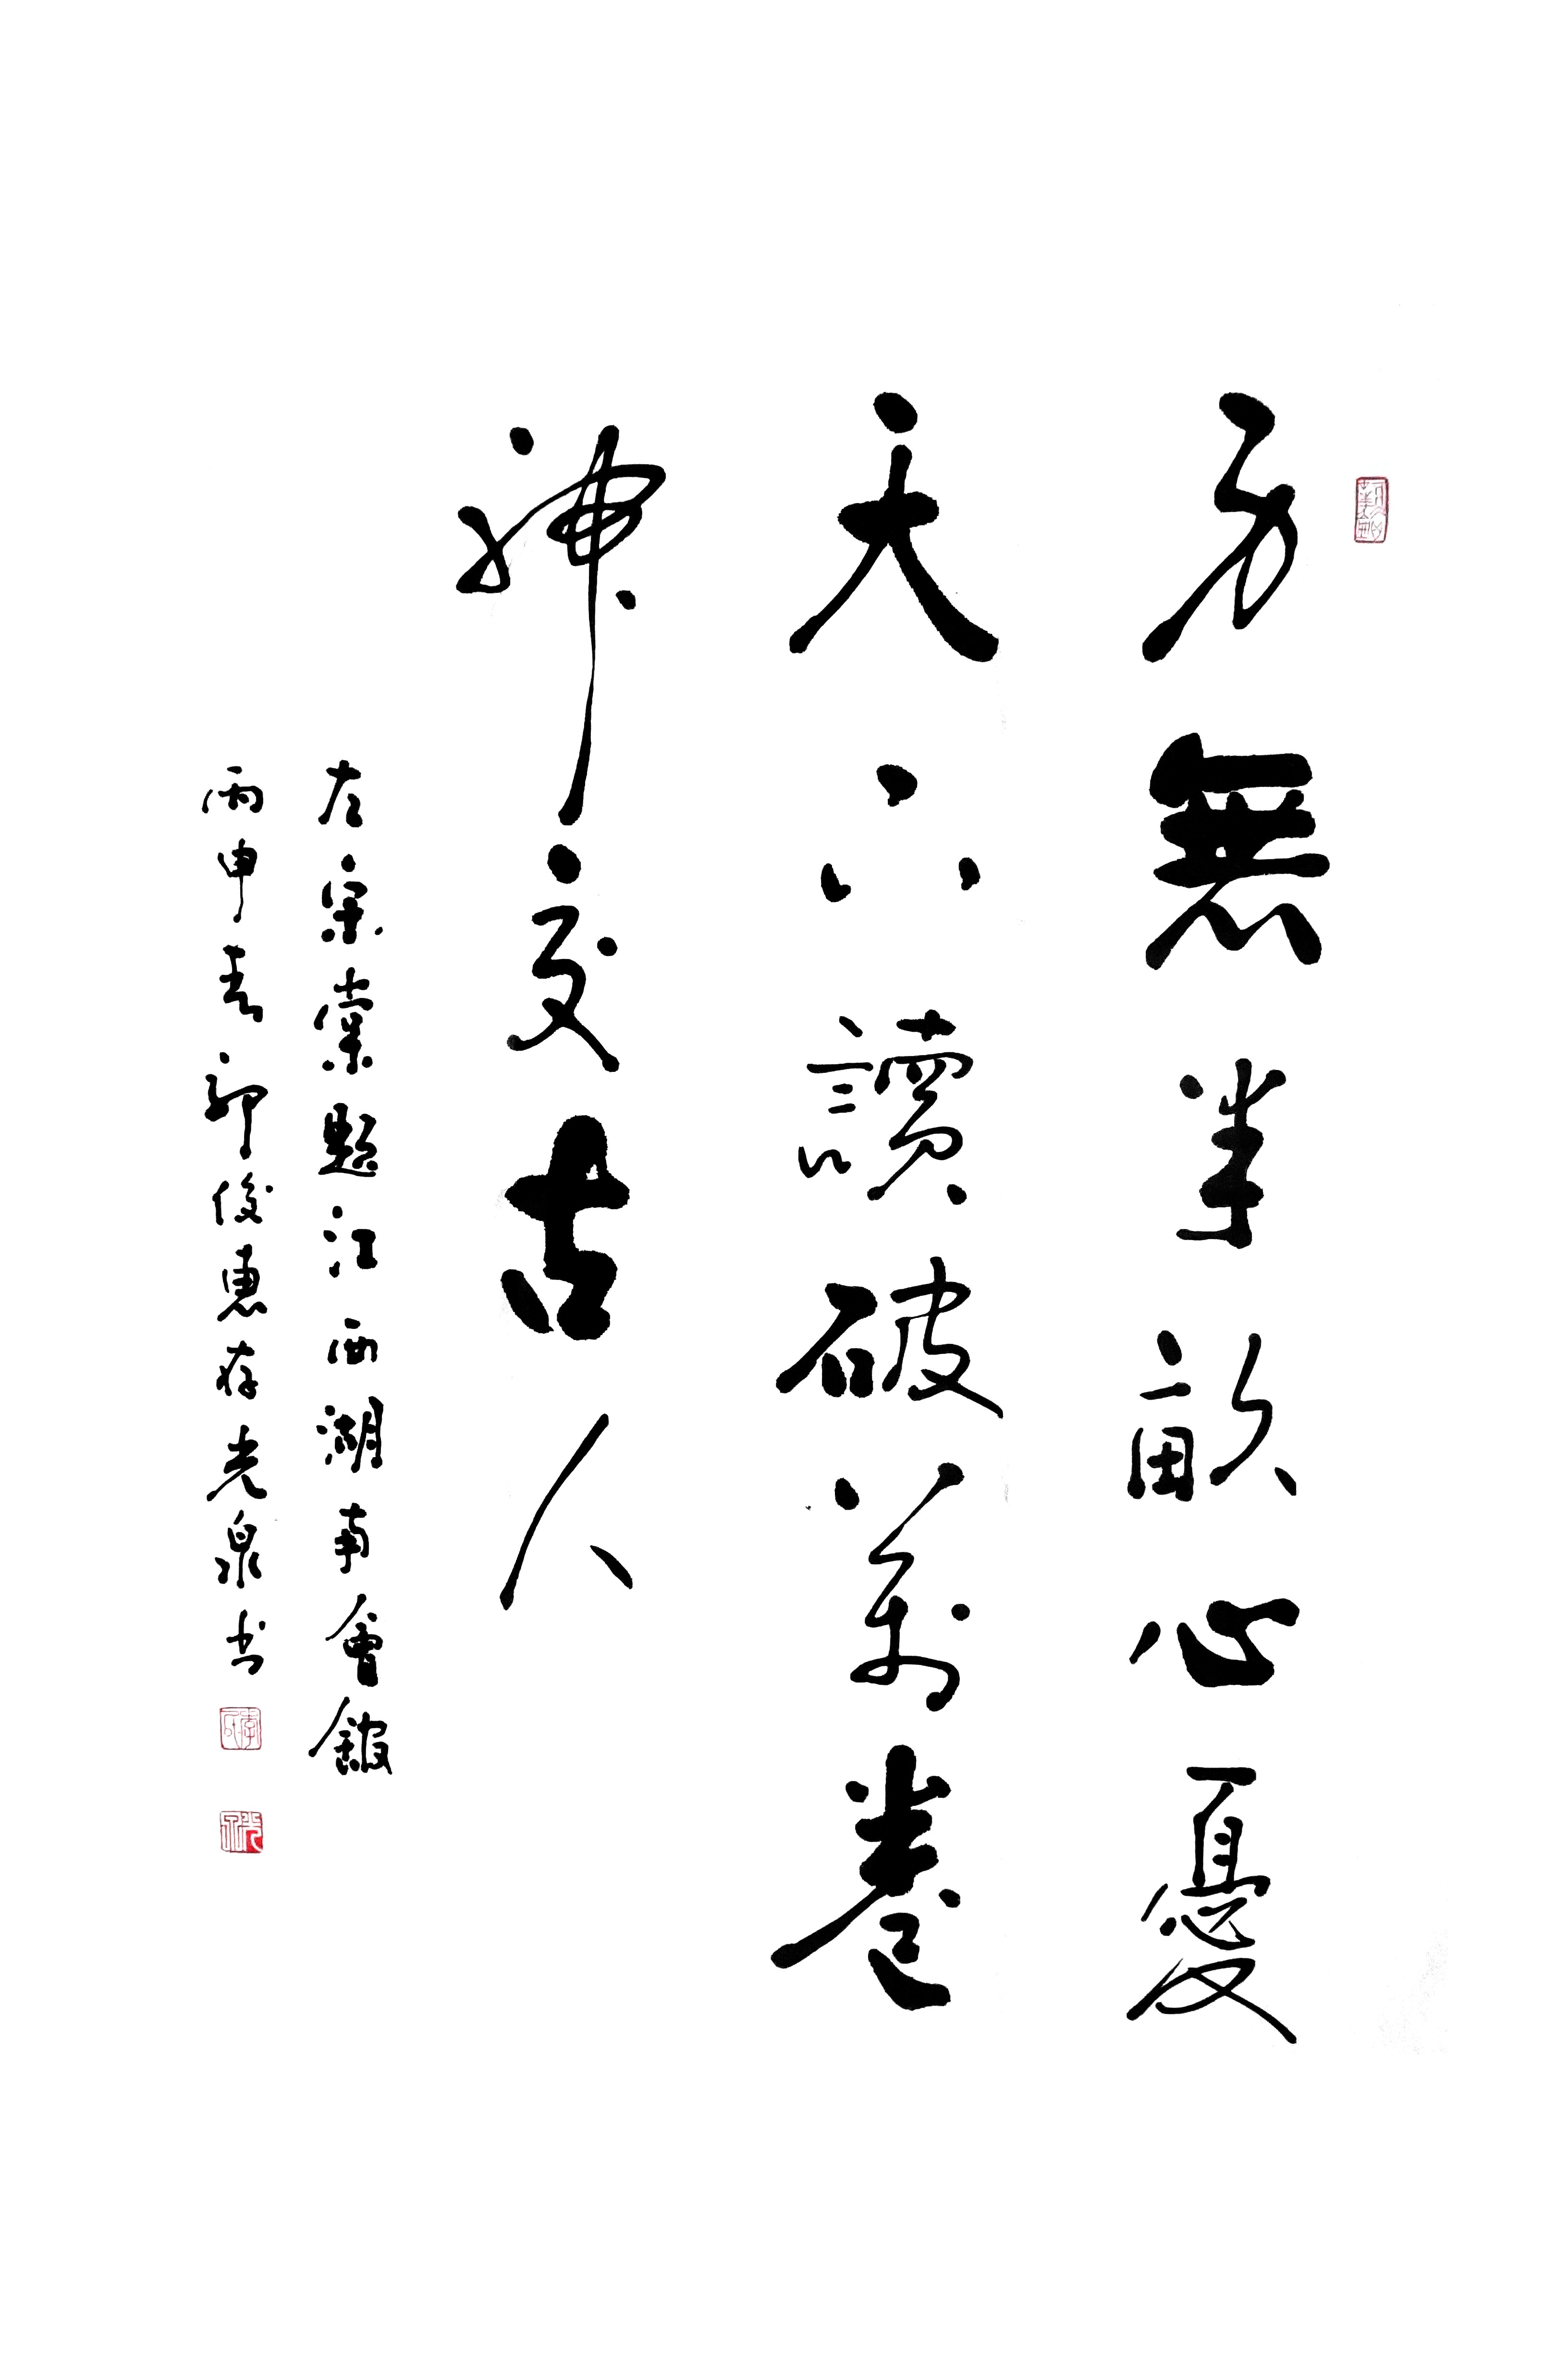 身無半畝心憂
天下讀破萬卷
神交古人
左宗棠題江西湖南會館
丙申春俊惠存光泉书